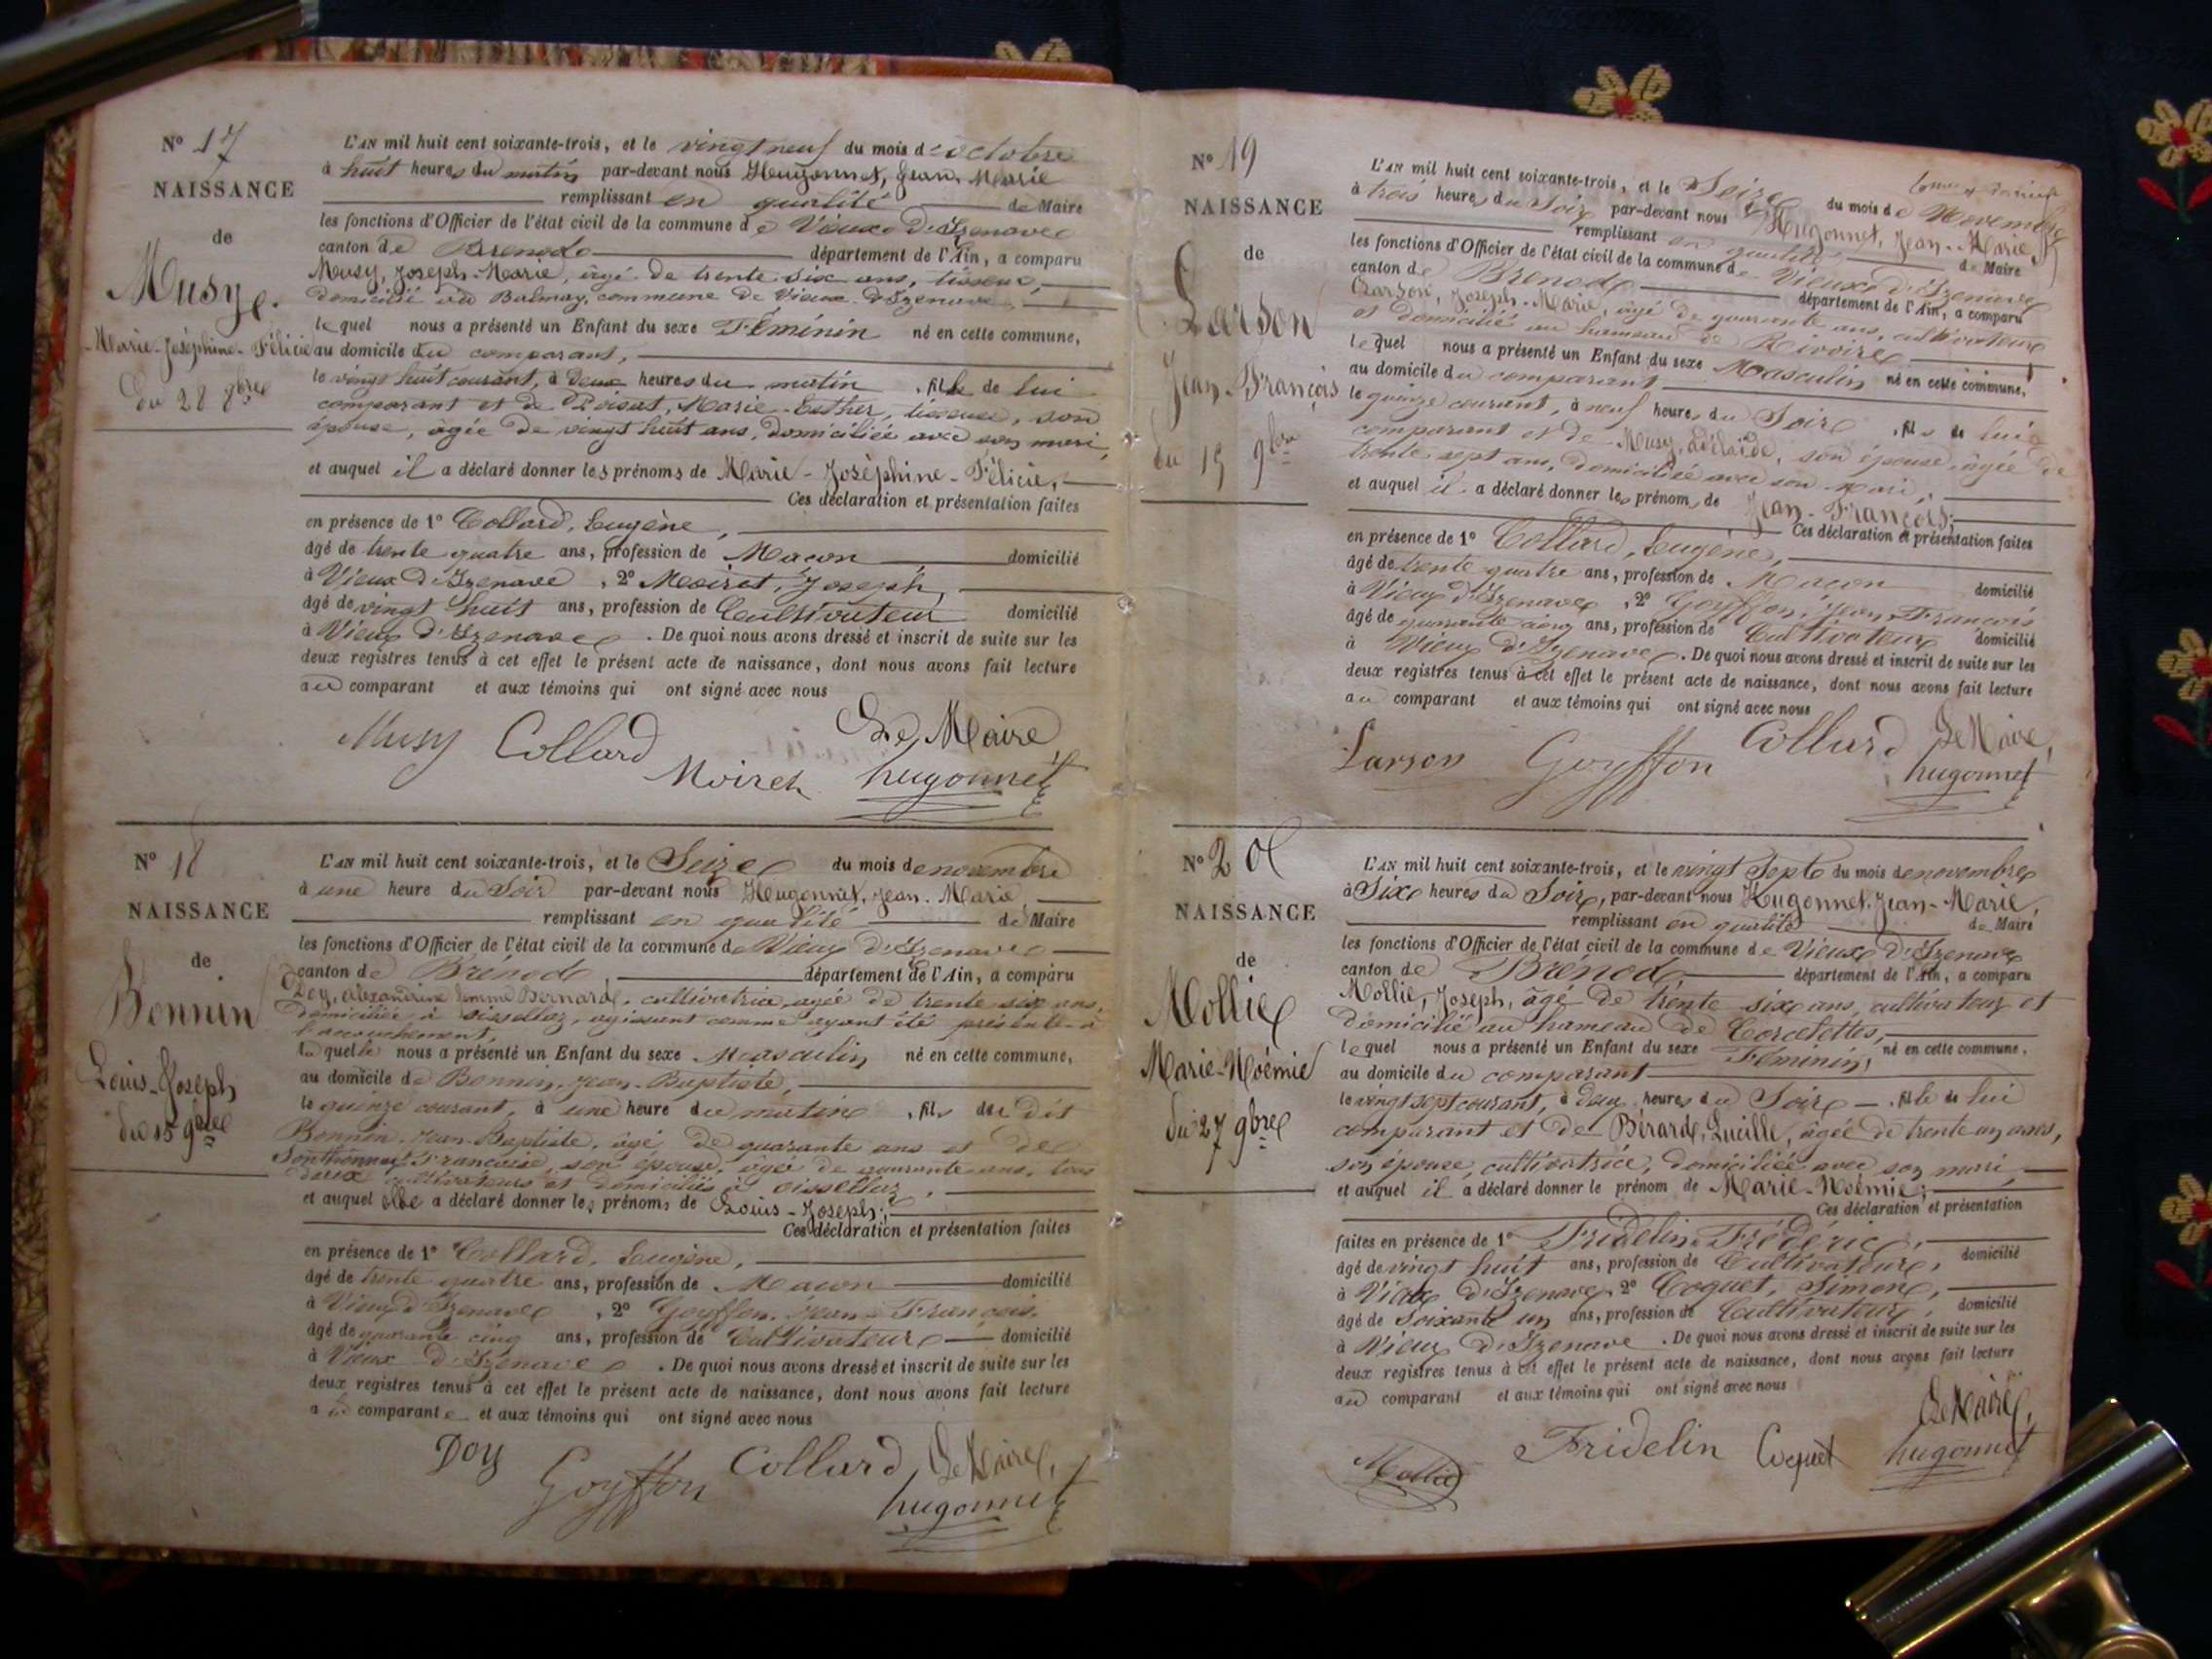 N° 17
NAISSANCE
de
Musy
Marie-Joséphine-Félicie
du 28 8bre
L'AN mil huit cent soixante-trois, et le vingt neuf du mois d'octobre
à huit heures du matin par-devant nous Hugonnet, Jean-Marie
remplissant en qualité de Maire
les fonctions d'Officier de l'état civil de la commune de Vieux d'Izenave
canton de Brenod département de l'Ain, a comparu
Musy, Joseph-Marie, âgé de trente six ans, tisseur,
domicilié au Balmay, commune de Vieux d'Izenave,
lequel nous a présenté un Enfant du sexe Féminin né en cette commune,
au domicile du comparant,
le vingt huit courant, à deux heures du matin, fille de lui
comparant et de Poisat, Marie-Esther, tisseuse, son
épouse, âgée de vingt huit ans, domiciliée avec son mari,
et auquel il a déclaré donner les prénoms de Marie-Joséphine-Félicie,
Ces déclaration et présentation faites
en présence de 1° Collard, Eugène,
âgé de trente quatre ans, profession de Maçon domicilié
à Vieux d'Izenave, 2° Moiret, Joseph,
âgé de vingt huit ans, profession de Cultivateur domicilié
à Vieux d'Izenave. De quoi nous avons dressé et inscrit de suite sur les
deux registres tenus à cet effet le présent acte de naissance, dont nous avons fait lecture
au comparant et aux témoins qui ont signé avec nous
Musy Collard Le Maire,
Moiret hugonnet
N° 18
NAISSANCE
de
Bonnin
Louis-Joseph
du 15 9bre
L'AN mil huit cent soixante-trois, et le Seize du mois de novembre
à une heure du Soir par-devant nous Hugonnet, Jean-Marie,
remplissant en qualité de Maire
les fonctions d'Officier de l'état civil de la commune de Vieux d'Izenave
canton de Brénod, département de l'Ain, a comparu
Doy, Alexandrine femme Bernard, cultivatrice, âgée de trente six ans,
domiciliée à Oisselaz, agissant comme ayant été présente à
l'accouchement,
laquelle nous a présenté un Enfant du sexe Masculin né en cette commune,
au domicile de Bonnin, Jean-Baptiste,
le quinze courant, à une heure du matin, fils du dit
Bonnin, Jean-Baptiste, âgé de quarante ans et de
Sonthonnax Françoise, son épouse, âgée de quarante ans, tous
deux cultivateurs et domiciliés à Oisselaz,
et auquel elle a déclaré donner les prénoms de Louis-Joseph;
Ces déclaration et présentation faites
en présence de 1° Collard, Eugène,
âgé de trente quatre ans, profession de Maçon domicilié
à Vieux d'Izenave, 2° Goyffon, Jean-François,
âgé de quarante cinq ans, profession de Cultivateur domicilié
à Vieux d'Izenave. De quoi nous avons dressé et inscrit de suite sur les
deux registres tenus à cet effet le présent acte de naissance, dont nous avons fait lecture
a la comparante et aux témoins qui ont signé avec nous
Doy Goyffon Collard Le Maire,
hugonnet
N° 19
NAISSANCE
de
Larson
Jean-François
du 15 9bre
L'AN mil huit cent soixante-trois, et le Seize du mois de Novembre
à trois heures du Soir par-devant nous Hugonnet, Jean-Marie
remplissant en qualité de Maire
les fonctions d'Officier de l'état civil de la commune de Vieux d'Izenave
canton de Brenod département de l'Ain, a comparu
Larson, Joseph-Marie, âgé de quarante ans, cultivateur
et domicilié au hameau de Rivoire
lequel nous a présenté un Enfant du sexe Masculin né en cette commune,
au domicile du comparant
le quinze courant, à neuf heures du Soir, fils de lui
comparant et de Musy, Adélaïde, son épouse, âgée de
trente sept ans, domiciliée avec son mari,
et auquel il a déclaré donner les prénoms de Jean-François;
Ces déclaration et présentation faites
en présence de 1° Collard, Eugène,
âgé de trente quatre ans, profession de Maçon domicilié
à Vieux d'Izenave, 2° Goyffon, Jean-François
âgé de quarante cinq ans, profession de Cultivateur domicilié
à Vieux d'Izenave. De quoi nous avons dressé et inscrit de suite sur les
deux registres tenus à cet effet le présent acte de naissance, dont nous avons fait lecture
au comparant et aux témoins qui ont signé avec nous
Larson Goyffon Collard Le Maire,
hugonnet
N° 20
NAISSANCE
de
Mollie
Marie-Noémie
du 27 9bre
L'AN mil huit cent soixante-trois, et le vingt Sept du mois de novembre
à Six heures du Soir, par-devant nous Hugonnet, Jean-Marie,
remplissant en qualité de Maire
les fonctions d'Officier de l'état civil de la commune de Vieux d'Izenave
canton de Brénod, département de l'Ain, a comparu
Mollie, Joseph, âgé de trente six ans, cultivateur et
domicilié au hameau de Corcelettes,
lequel nous a présenté un Enfant du sexe Féminin, né en cette commune,
au domicile du comparant
le vingt sept courant, à deux heures du Soir, fille de lui
comparant et de Bérard, Lucille, âgée de trente un ans,
son épouse, cultivatrice, domiciliée avec son mari,
et auquel il a déclaré donner le prénom de Marie-Noémie;
Ces déclaration et présentation
faites en présence de 1° Fridelin Frédéric,
âgé de vingt huit ans, profession de Cultivateur, domicilié
à Vieux d'Izenave, 2° Coquet, Simon,
âgé de Soixante un ans, profession de Cultivateur, domicilié
à Vieux d'Izenave. De quoi nous avons dressé et inscrit de suite sur les
deux registres tenus à cet effet le présent acte de naissance, dont nous avons fait lecture
au comparant et aux témoins qui ont signé avec nous
Mollie Fridelin Coquet Le Maire,
hugonnet